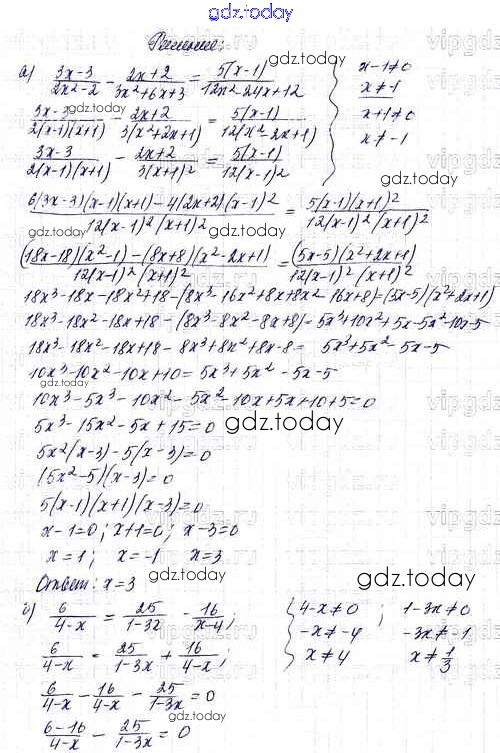 gdz.today
Решение:
а) (3x-3)/(2x²-2) - (2x+2)/(3x²+6x+3) = 5(x-1)/(12x²-24x+12) { x-1≠0
x≠1
(3x-3)/(2(x-1)(x+1)) - (2x+2)/(3(x²+2x+1)) = 5(x-1)/(12(x²-2x+1)) x+1≠0
x≠-1
(3x-3)/(2(x-1)(x+1)) - (2x+2)/(3(x+1)²) = 5(x-1)/(12(x-1)²)
(6(3x-3)(x-1)(x+1)-4(2x+2)(x-1)²)/(12(x-1)²(x+1)²) = 5(x-1)(x+1)²/(12(x-1)²(x+1)²)
((18x-18)(x²-1)-(8x+8)(x²-2x+1))/(12(x-1)²(x+1)²) = (5x-5)(x²+2x+1)/(12(x-1)²(x+1)²)
18x³-18x-18x²+18-(8x³-16x²+8x+8x²-16x+8)=(5x-5)(x²+2x+1)
18x³-18x²-18x+18-(8x³-8x²-8x+8)=5x³+10x²+5x-5x²-10x-5
18x³-18x²-18x+18-8x³+8x²+8x-8=5x³+5x²-5x-5
10x³-10x²-10x+10=5x³+5x²-5x-5
10x³-5x³-10x²-5x²-10x+5x+10+5=0
5x³-15x²-5x+15=0
5x²(x-3)-5(x-3)=0
(5x²-5)(x-3)=0
5(x-1)(x+1)(x-3)=0
x-1=0; x+1=0; x-3=0
x=1; x=-1 x=3
Ответ: x=3
gdz.today
б) 6/(4-x) = 25/(1-3x) - 16/(x-4); { 4-x≠0 ; 1-3x≠0
-x≠-4 -3x≠-1
6/(4-x) = 25/(1-3x) + 16/(4-x); x≠4 x≠1/3
6/(4-x) - 16/(4-x) - 25/(1-3x) = 0
(6-16)/(4-x) - 25/(1-3x) = 0